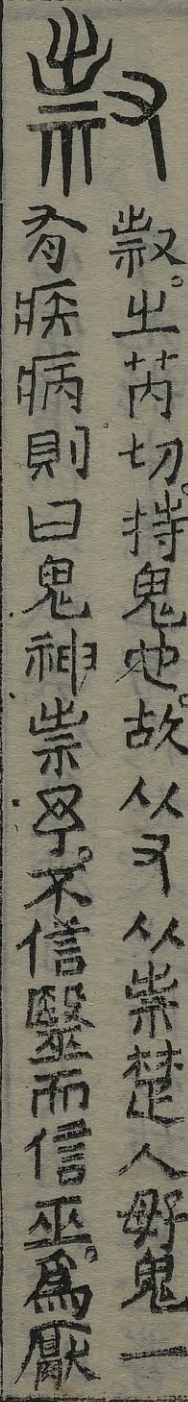 𠭥。之芮切。持鬼也。故从又从祟楚人好鬼一
有疾病則曰鬼神祟予。不信毉而信巫。爲厭